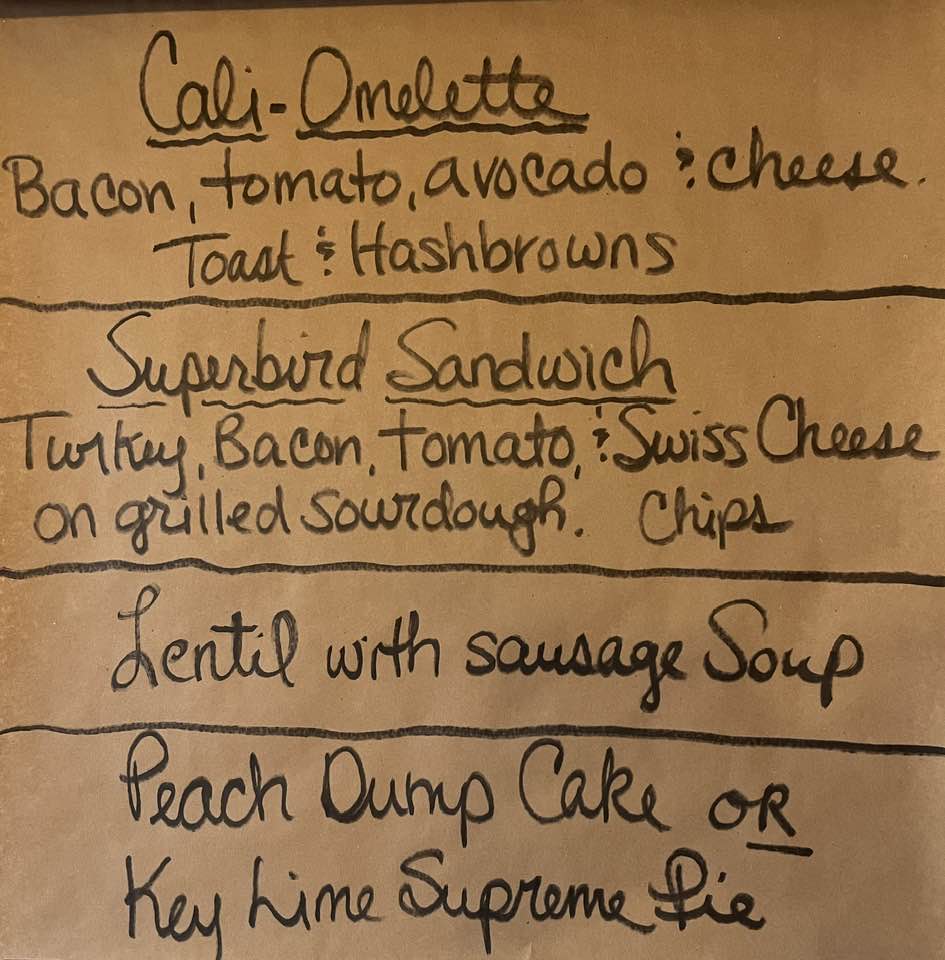 Cali-Omelette
Bacon, tomato, avocado & cheese.
Toast & Hashbrowns
Superbird Sandwich
Turkey, Bacon, tomato, & Swiss Cheese
on grilled sourdough. Chips
Lentil with sausage Soup
Peach Dump Cake OR
Key Lime Supreme Pie